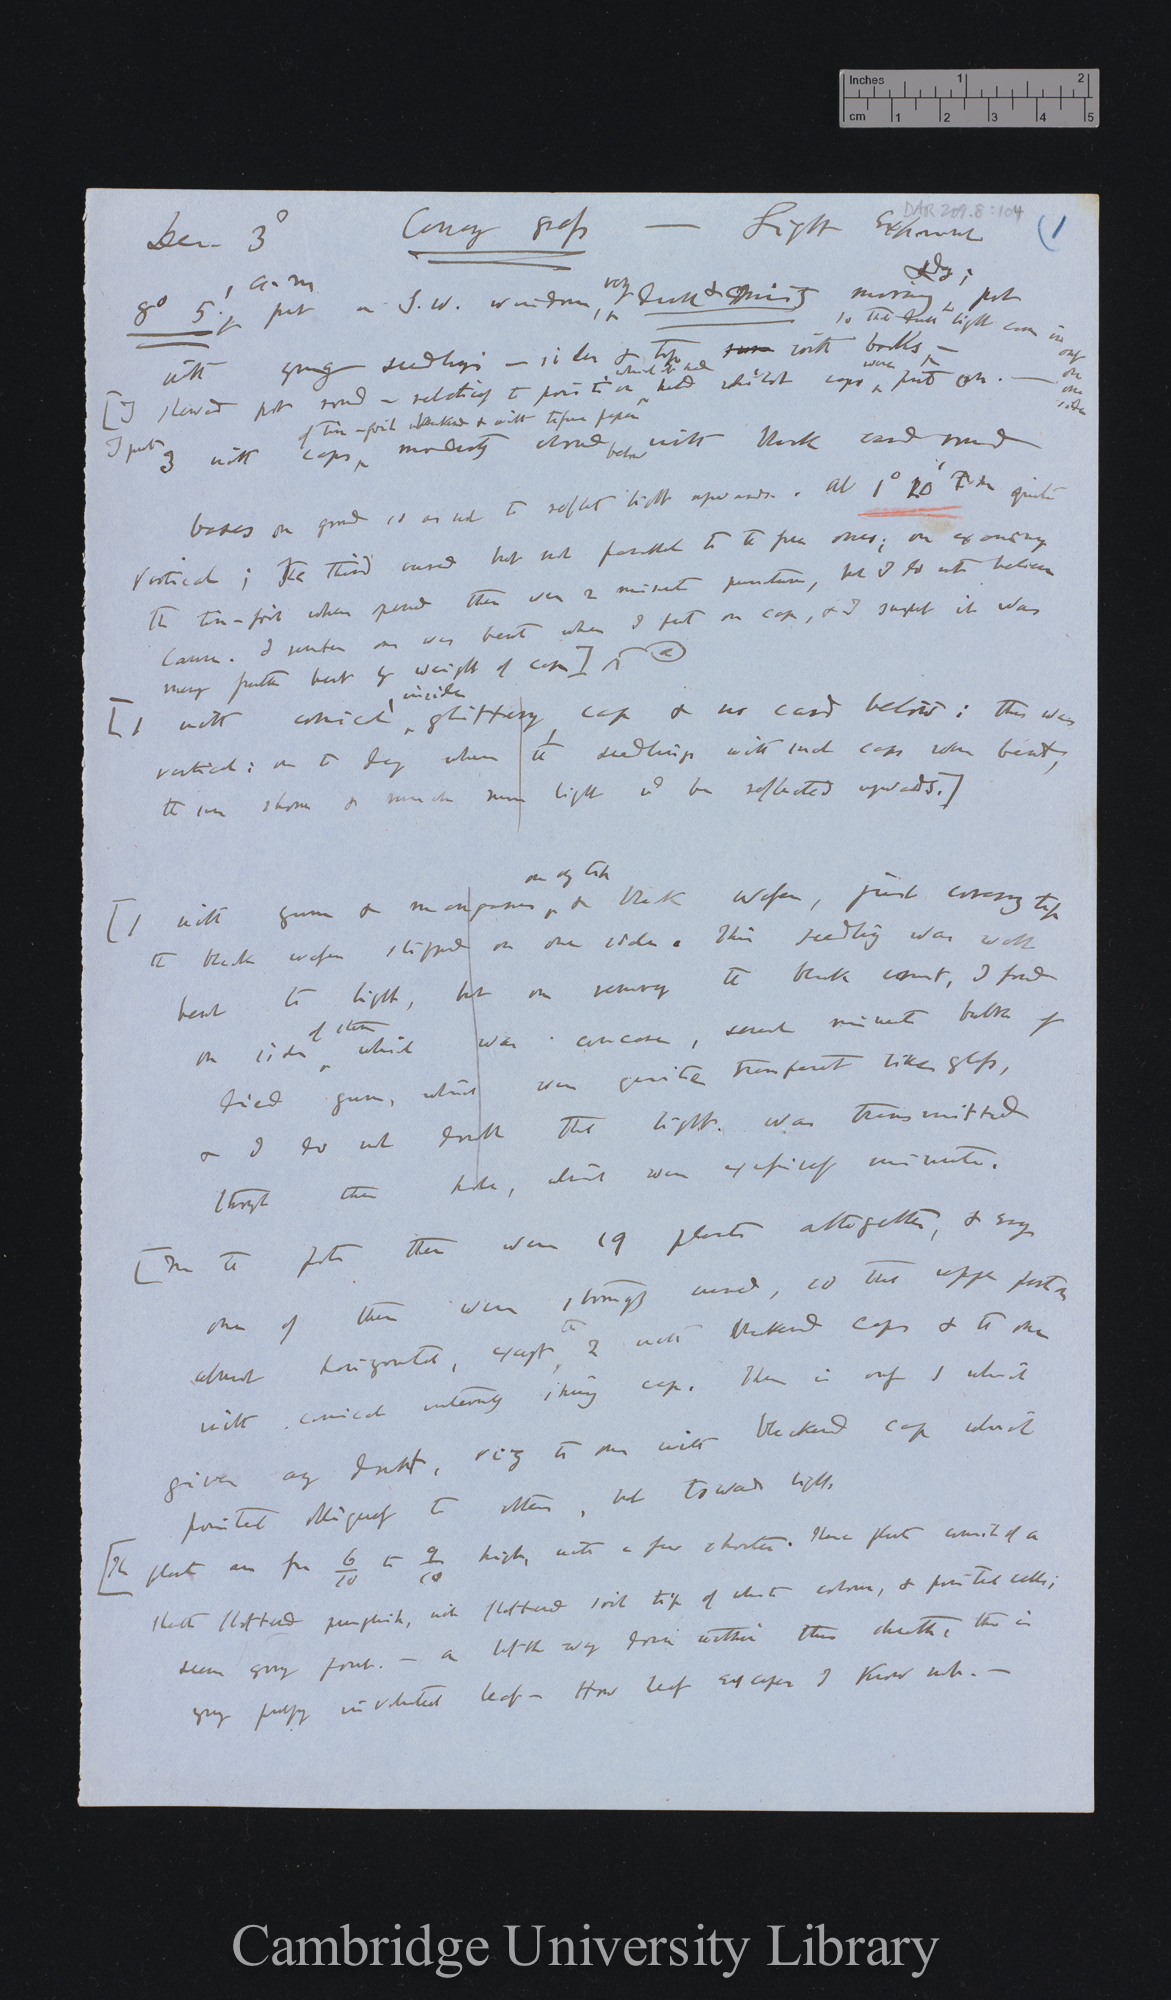 Inches 1 2
cm 1 2 3 4 5
DAR 209.8:104
Dec. 3° Canary grass — Light Experiment (1
8° 5' a.m put in S.W. window, very dark & misty morning & day; pot
so that light came in only on one side
with young seedlings — sides & top with books —
[I slewed pot round relatively to position which it had whilst caps were put on. —
I put 3 with caps of tin-foil blackened & with tissue paper moderately closed below with black card round
bases on ground so as not to reflect light upwards. At 1° 20' two quite
vertical; the third curved but not parallel to the free ones; on examining
the tin-foil when opened there were 2 minute punctures, but I do not believe
cause. I remember one was bent when I put on cap, & I suspect it was
merely further bent by weight of cap] (a)
[1 with conical, inside glittering cap & no card below: this was
vertical: on the day when the seedlings with such caps were bent,
the sun shone & much more light wd be reflected upwards.]
[1 with gum & manganese on tip & black wafer, just covering tip
the black wafer slipped on one side. This seedling was well
bent to light, but on removing the black cement, I found
on side of stem which was concave, several minute bubbles of
dried gum, which were quite transparent like glass,
& I do not doubt that light was transmitted
through these holes, which were excessively minute.
[In the pots there were 19 plants altogether, & every
one of them were strongly curved, so that upper part was
almost horizontal, except the 2 with blackened caps & the one
with conical internally shiny cap. There is only 1 which
gives any doubt, viz the one with blackened cap which
pointed obliquely to others, but towards light.
[The plants are from 6/10 to 9/10 high, with a few shorter. These plants consist of a
sheath flattened purplish, with flattened solid tip of white colour, & pointed cells;
seem going from. — a little way down within this sheath, there is
green pulpy involuted leaf — How leaf escapes I know not. —
Cambridge University Library